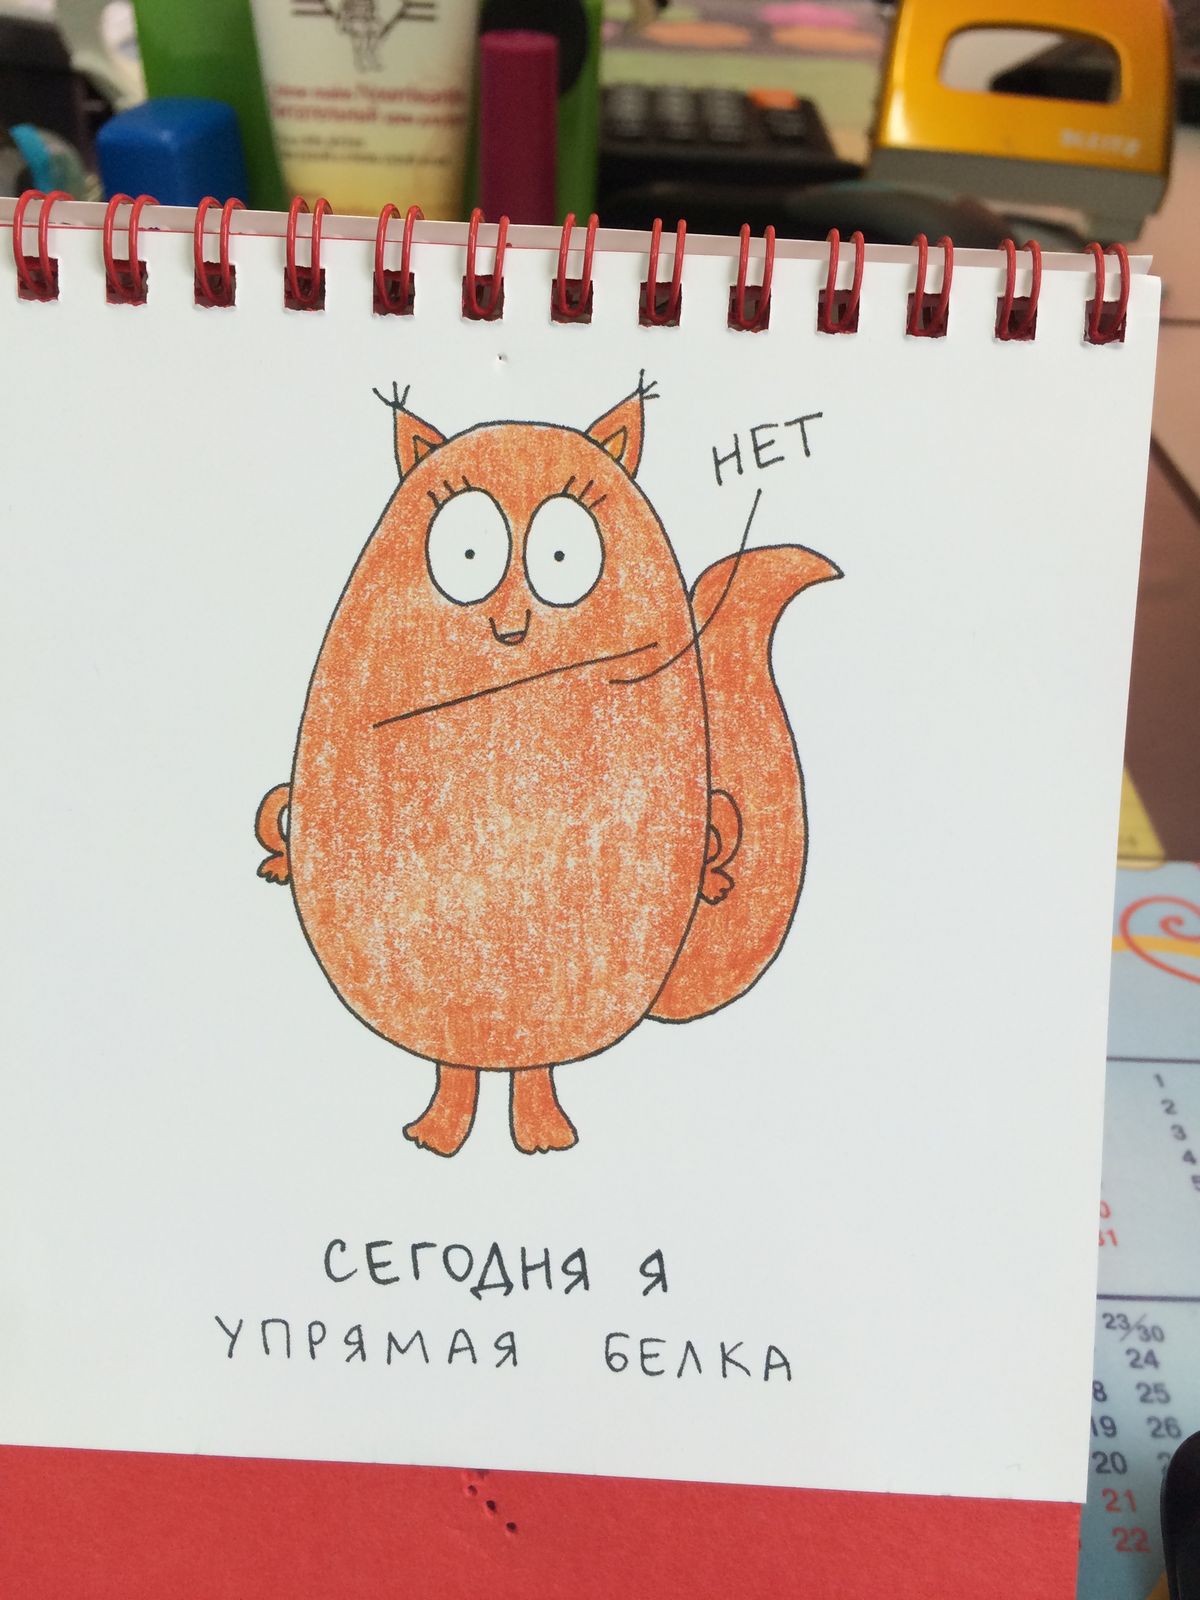 НЕТ
СЕГОДНЯ Я
УПРЯМАЯ БЕЛКА
LEITZ
1
2
3
4
5
31
23/30
24
8 25
19 26
20
21
22